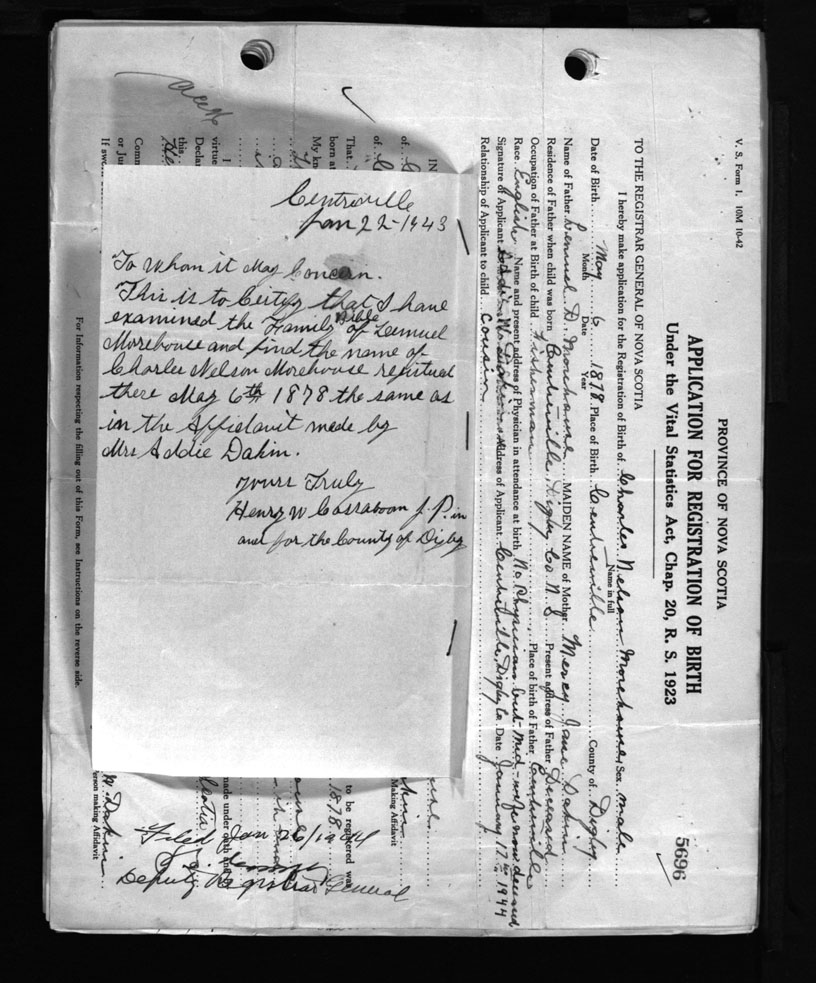 V. S. Form 1. 10M 10-42
PROVINCE OF NOVA SCOTIA
5696
APPLICATION FOR REGISTRATION OF BIRTH
Under the Vital Statistics Act, Chap. 20, R. S. 1923
TO THE REGISTRAR GENERAL OF NOVA SCOTIA
I hereby make application for the Registration of Birth of Charles Nelson Morehouse Sex male
Name in full
Date of Birth May 6 1878 Place of Birth Centreville County of Digby
Month Date Year
Name of Father Lemuel D. Morehouse MAIDEN NAME of Mother Mercy Jane Dakin
Residence of Father when child was born Centreville Digby Co. N. S Present address of Father Deceased
Occupation of Father at Birth of child Fisherman Place of birth of Father Centreville
Race English Name and present address of Physician in attendance at birth No Physician but Mid-wife now deceased
Signature of Applicant Address of Applicant Centreville, Digby Co Date January 17th 1944
Relationship of Applicant to child Cousin
Centreville
Jan 22-1943
To Whom it May Concern.
This is to Certify that I have
examined the Family Bible of Lemuel
Morehouse and find the name of
Charles Nelson Morehouse registered
there May 6th 1878 the same as
in the Affidavit made by
Mrs Addie Dakin.
Yours Truly
Henry W Cossaboom J. P. in
and for the County of Digby
IN
of
of
That
born at
My kn
I
virtue
Declar
this
Comm
or Jus
If sworn
Making Affidavit
to be registered was
1878
made under oath and
Filed Jan 26/1944
Deputy Registrar General
W. Dakin
erson making Affidavit
For Information respecting the filling out of this Form, see Instructions on the reverse side.